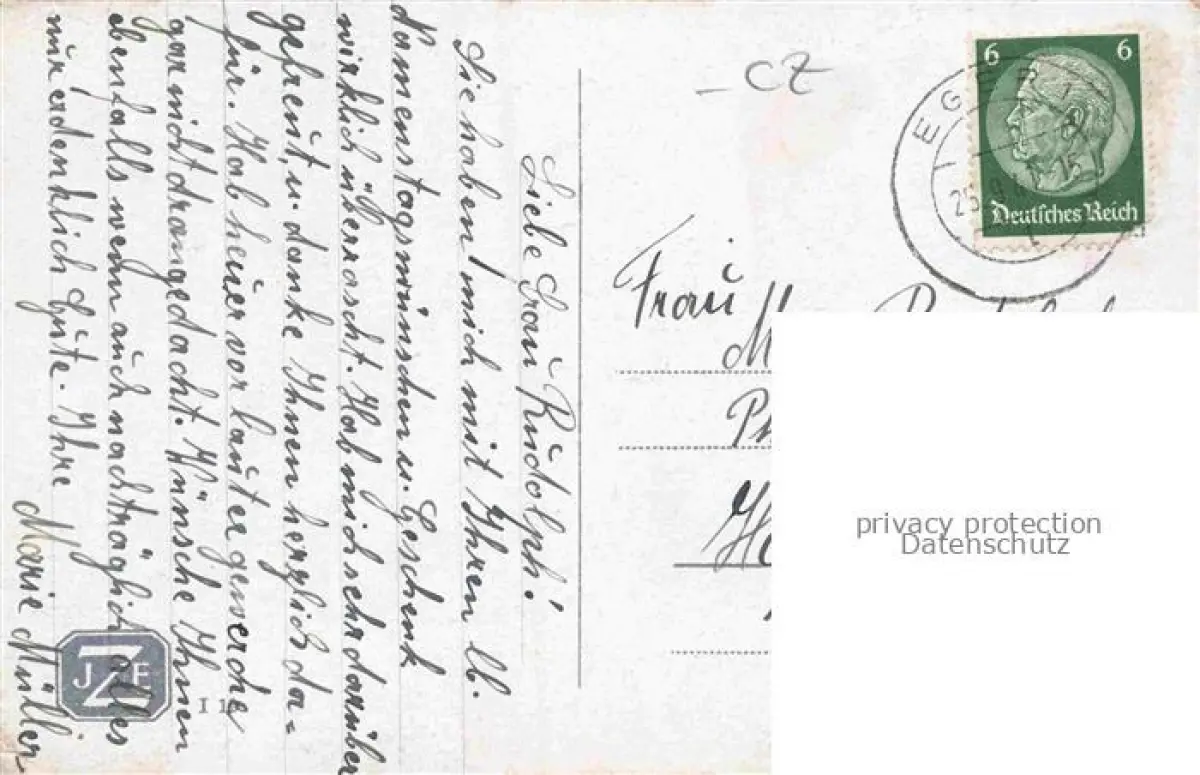 Liebe Frau Rudolph!
Sie haben mich mit Ihren lb.
Namenstagswünschen u. Geschenk
wirklich überrascht. Hab mich sehr darüber
gefreut, u. danke Ihnen herzlich da-
für. Hab heuer vor lauter
gar nicht dran gedacht. Wünsche Ihnen
ebenfalls wenn auch nachträglich alles
nur erdenklich Gute. Ihre
Marie Müller
J Z E
CZ
6 6
Deutsches Reich
EGER
Frau
privacy protection
Datenschutz